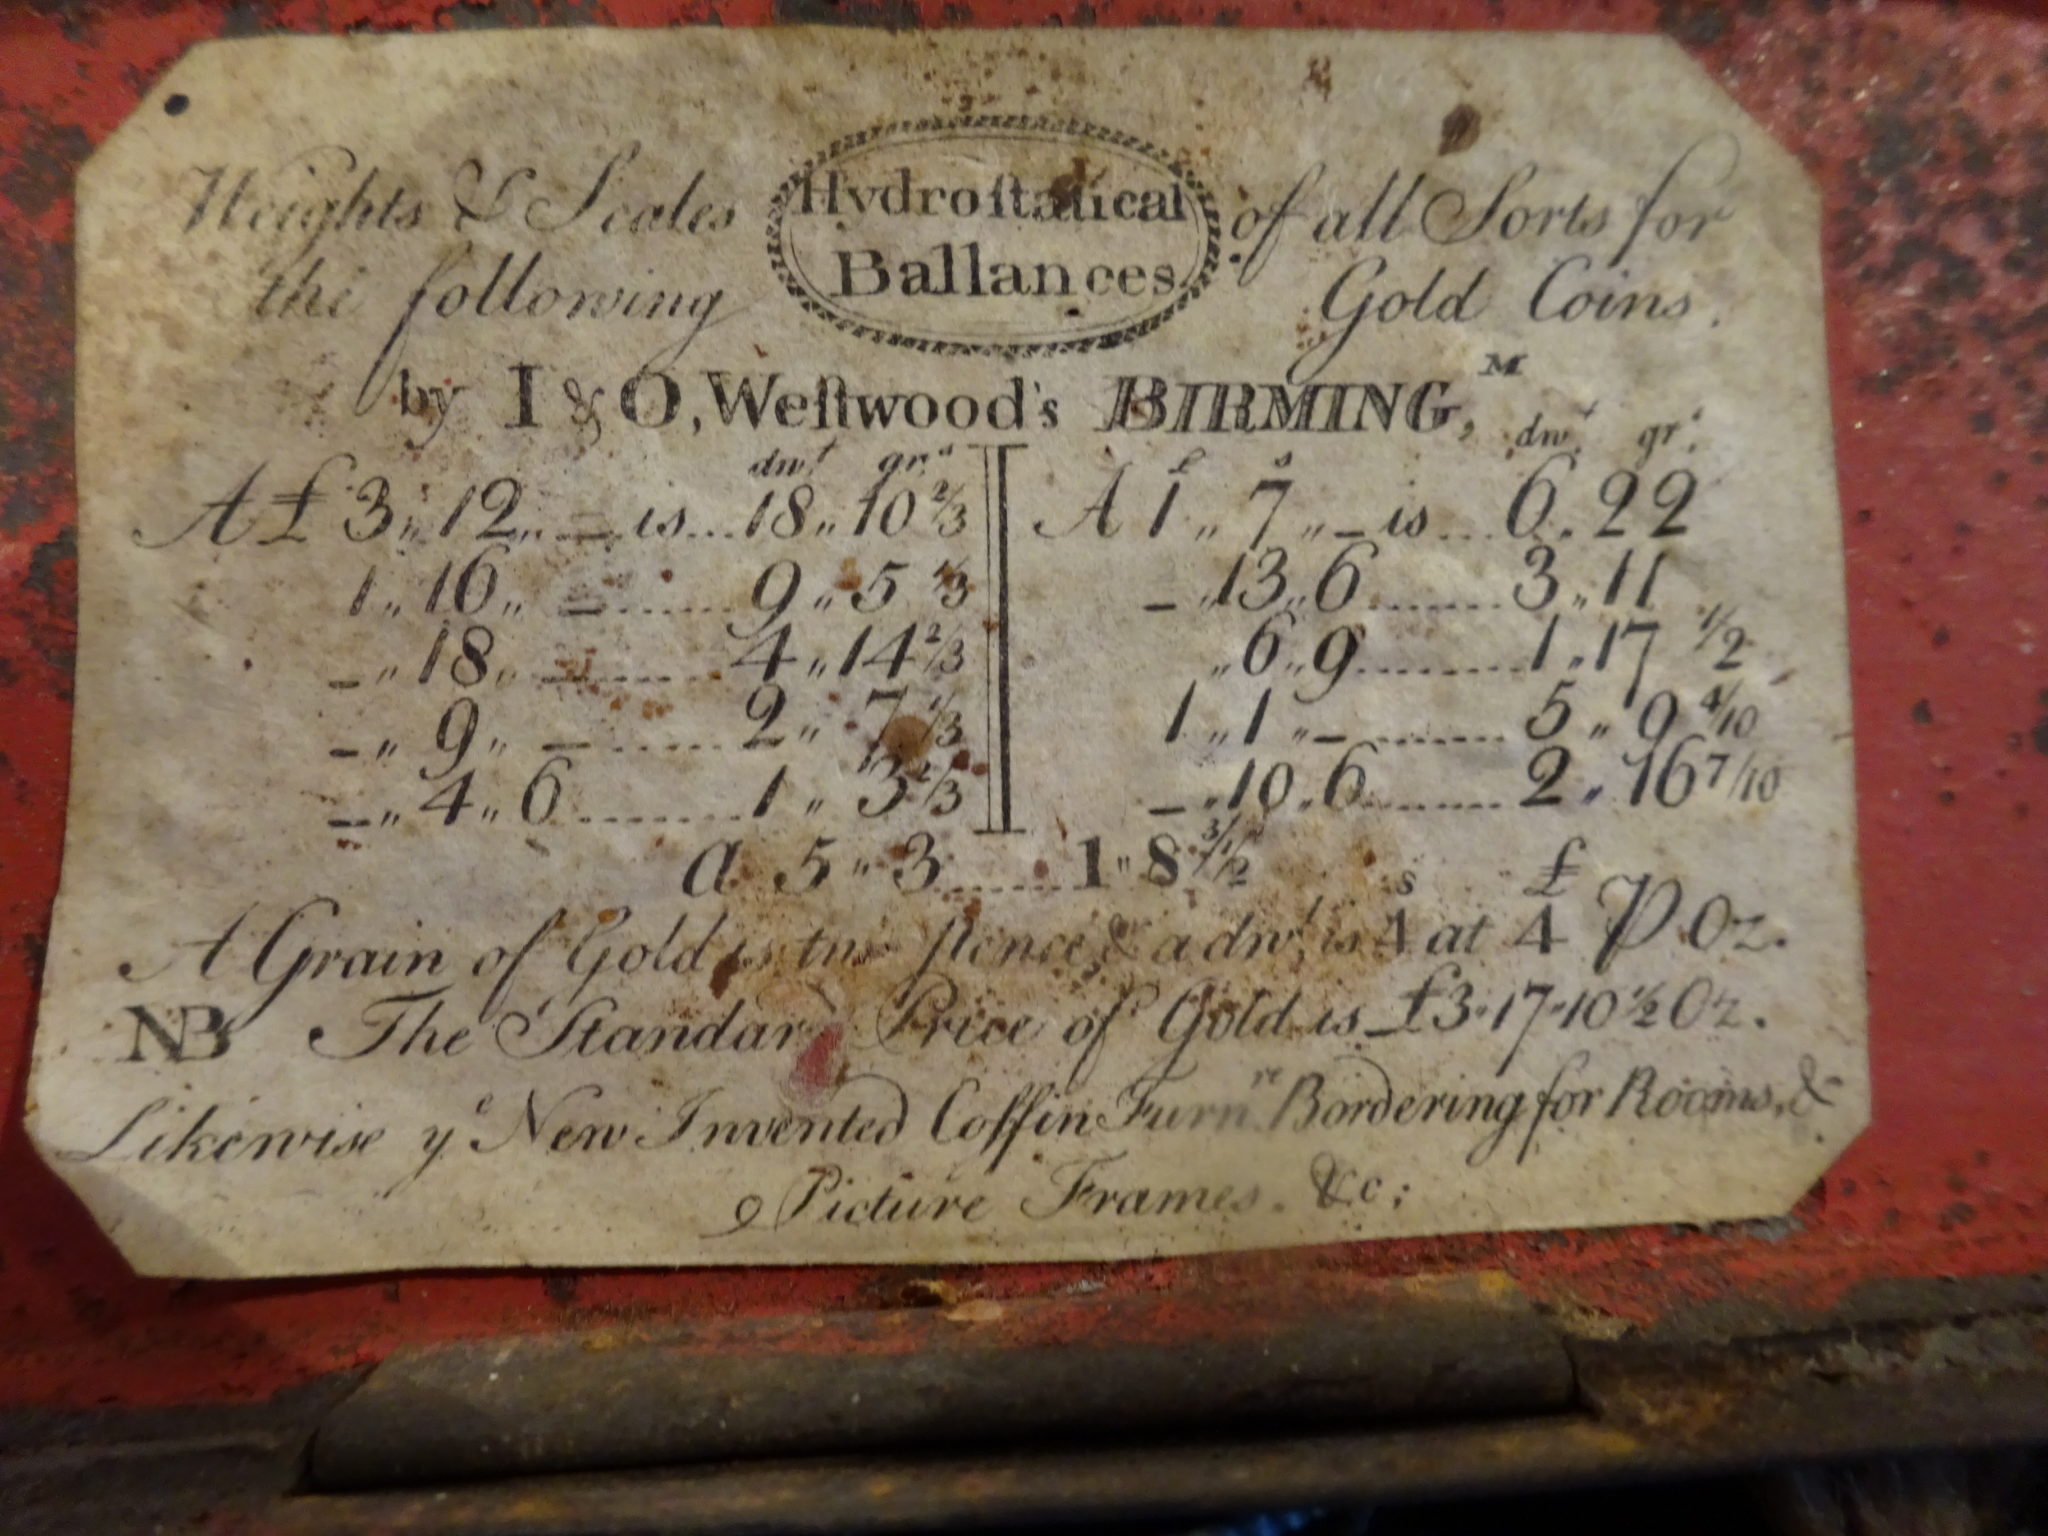 Weights & Scales Hydroſtatical of all Sorts for
the following Ballances Gold Coins.
by I & O, Weſtwood's BIRMING,ᴹ
dwᵗ grˢ £ s dwᵗ grˢ
A £ 3,, 12,, — is... 18,, 10 2/3 A 1,, 7,, — is... 6,, 22
1,, 16,, — ........ 9,, 5 1/3 —,, 13,, 6 ........ 3,, 11
—,, 18,, — ........ 4,, 14 2/3 ,, 6,, 9 ........ 1,, 17 1/2
—,, 9,, — ........ 2,, 7 1/3 1,, 1,, — ........ 5,, 9 4/10
—,, 4,, 6 ........ 1,, 3 2/3 —,, 10,, 6 ........ 2,, 16 7/10
a 5,, 3 ........ 1,, 8
s £
A Grain of Gold is two Pence & a dwᵗ is 4 at 4 P Oz.
NB The Standard Price of Gold is £3·17·10½ Oz.
Likewise yᵉ New Invented Coffin Furnʳᵉ Bordering for Rooms, &
Picture Frames. &c: